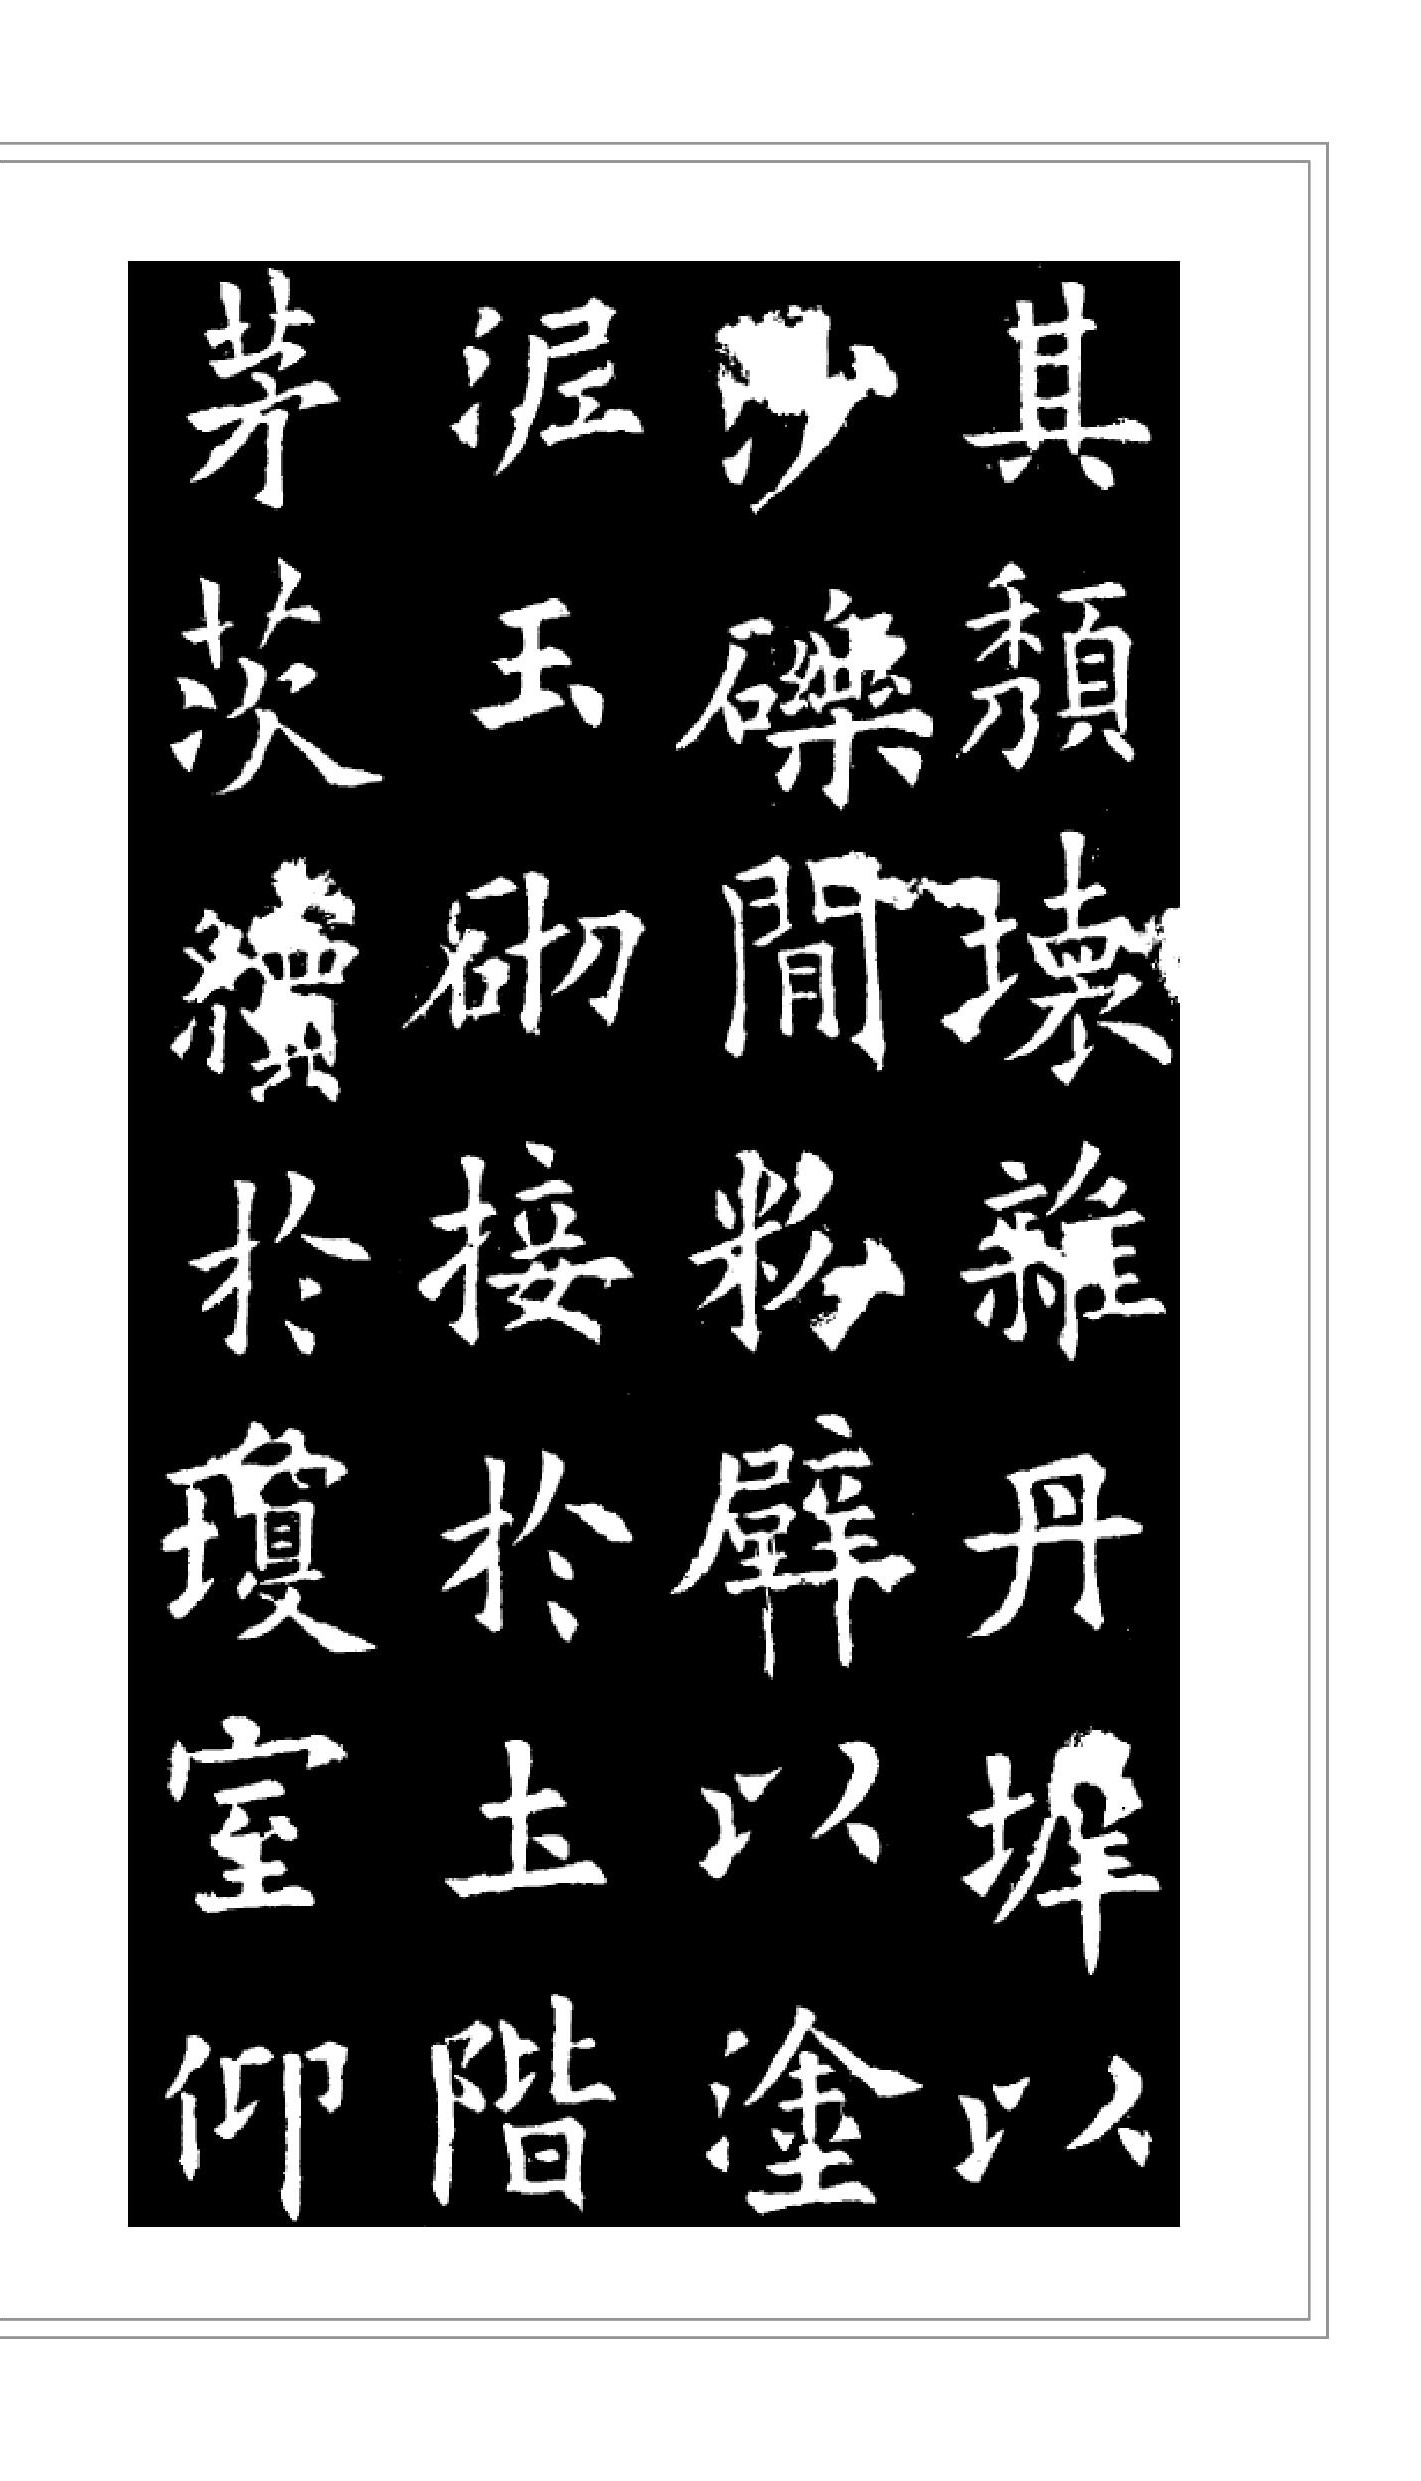 其頹壞雜丹墀以
沙礫間粉壁以塗
泥玉砌接於土階
茅茨續於瓊室仰